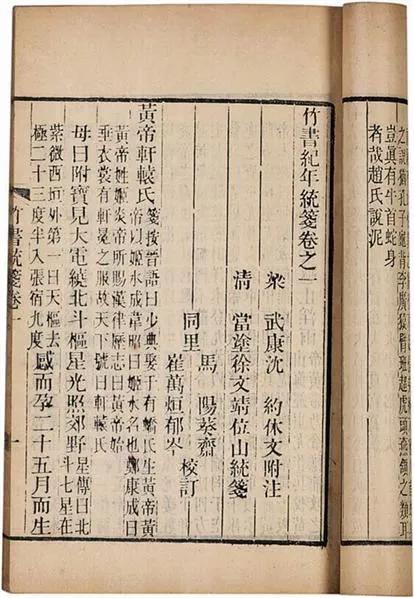 之說猶孔子
豈眞有牛首蛇身
者哉趙氏說泥
竹書紀年統箋卷之一
梁 武康沈 約休文附注
清 當塗徐文靖位山統箋
馬 陽葵齋
同里 校訂
崔萬烜郁岑
黃帝軒轅氏 箋按晉語曰少典娶于有蟜氏生黃帝黃
帝以姬水成韋昭曰姬水名也鄭康成曰
黃帝姓姬炎帝所賜漢律歷志曰黃帝始
垂衣裳有軒冕之服故天下號曰軒轅氏
母曰附寶見大電繞北斗樞星光照郊野 星傳曰北
斗七星在
紫微西垣外第一曰天樞去
極二十三度半入張宿九度 感而孕二十五月而生
竹書統箋卷一